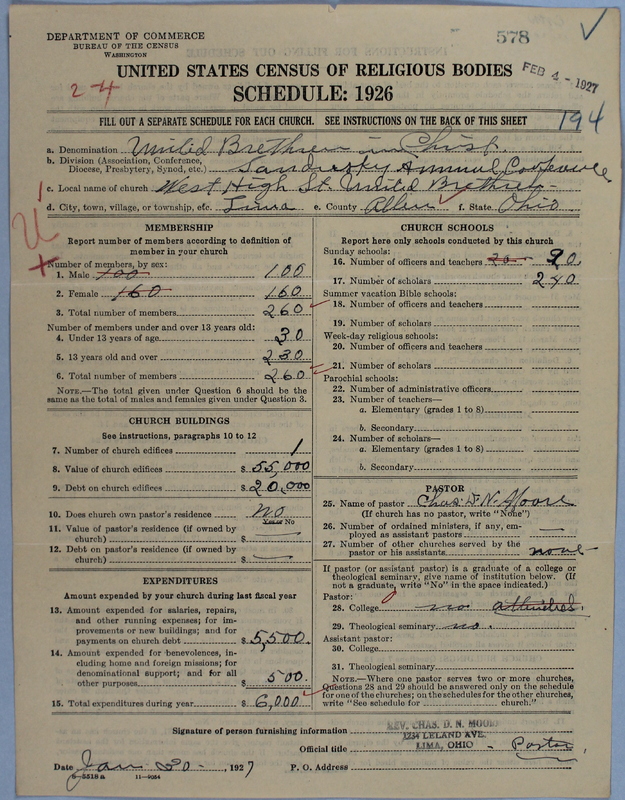 DEPARTMENT OF COMMERCE
BUREAU OF THE CENSUS
WASHINGTON
578
FEB 4 - 1927
UNITED STATES CENSUS OF RELIGIOUS BODIES
2-4
SCHEDULE: 1926
194
FILL OUT A SEPARATE SCHEDULE FOR EACH CHURCH. SEE INSTRUCTIONS ON THE BACK OF THIS SHEET
a. Denomination United Brethren in Christ.
b. Division (Association, Conference, Diocese, Presbytery, Synod, etc.) Sandusky Annual Conference
c. Local name of church West High St. United Brethren
d. City, town, village, or township, etc. Lima e. County Allen f. State Ohio
MEMBERSHIP
Report number of members according to definition of member in your church
Number of members, by sex:
1. Male 100 100
2. Female 160 160
3. Total number of members 260
Number of members under and over 13 years old:
4. Under 13 years of age 30
5. 13 years old and over 230
6. Total number of members 260
NOTE.—The total given under Question 6 should be the same as the total of males and females given under Question 3.
CHURCH BUILDINGS
See instructions, paragraphs 10 to 12
7. Number of church edifices 1
8. Value of church edifices $ 55,000
9. Debt on church edifices $ 20,000
10. Does church own pastor's residence No
Yes or No
11. Value of pastor's residence (if owned by church) $ —
12. Debt on pastor's residence (if owned by church) $ —
EXPENDITURES
Amount expended by your church during last fiscal year
13. Amount expended for salaries, repairs, and other running expenses; for improvements or new buildings; and for payments on church debt $ 5,500.
14. Amount expended for benevolences, including home and foreign missions; for denominational support; and for all other purposes $ 500.
15. Total expenditures during year $ 6,000
CHURCH SCHOOLS
Report here only schools conducted by this church
Sunday schools:
16. Number of officers and teachers 20
17. Number of scholars 240
Summer vacation Bible schools:
18. Number of officers and teachers
19. Number of scholars
Week-day religious schools:
20. Number of officers and teachers
21. Number of scholars
Parochial schools:
22. Number of administrative officers
23. Number of teachers—
a. Elementary (grades 1 to 8)
b. Secondary
24. Number of scholars—
a. Elementary (grades 1 to 8)
b. Secondary
PASTOR
25. Name of pastor Chas. D. N. Moore
(If church has no pastor, write "None")
26. Number of ordained ministers, if any, employed as assistant pastors —
27. Number of other churches served by the pastor or his assistants none
If pastor (or assistant pastor) is a graduate of a college or theological seminary, give name of institution below. (If not a graduate, write "No" in the space indicated.)
Pastor:
28. College no attended.
29. Theological seminary no.
Assistant pastor:
30. College
31. Theological seminary
NOTE.—Where one pastor serves two or more churches, Questions 28 and 29 should be answered only on the schedule for one of the churches; on the schedules for the other churches, write "See schedule for church."
Signature of person furnishing information REV. CHAS. D. N. MOORE
1234 LELAND AVE.
Official title LIMA, OHIO - Pastor
Date Jan 20 -, 1927 P. O. Address
8-5518 a 11-9054